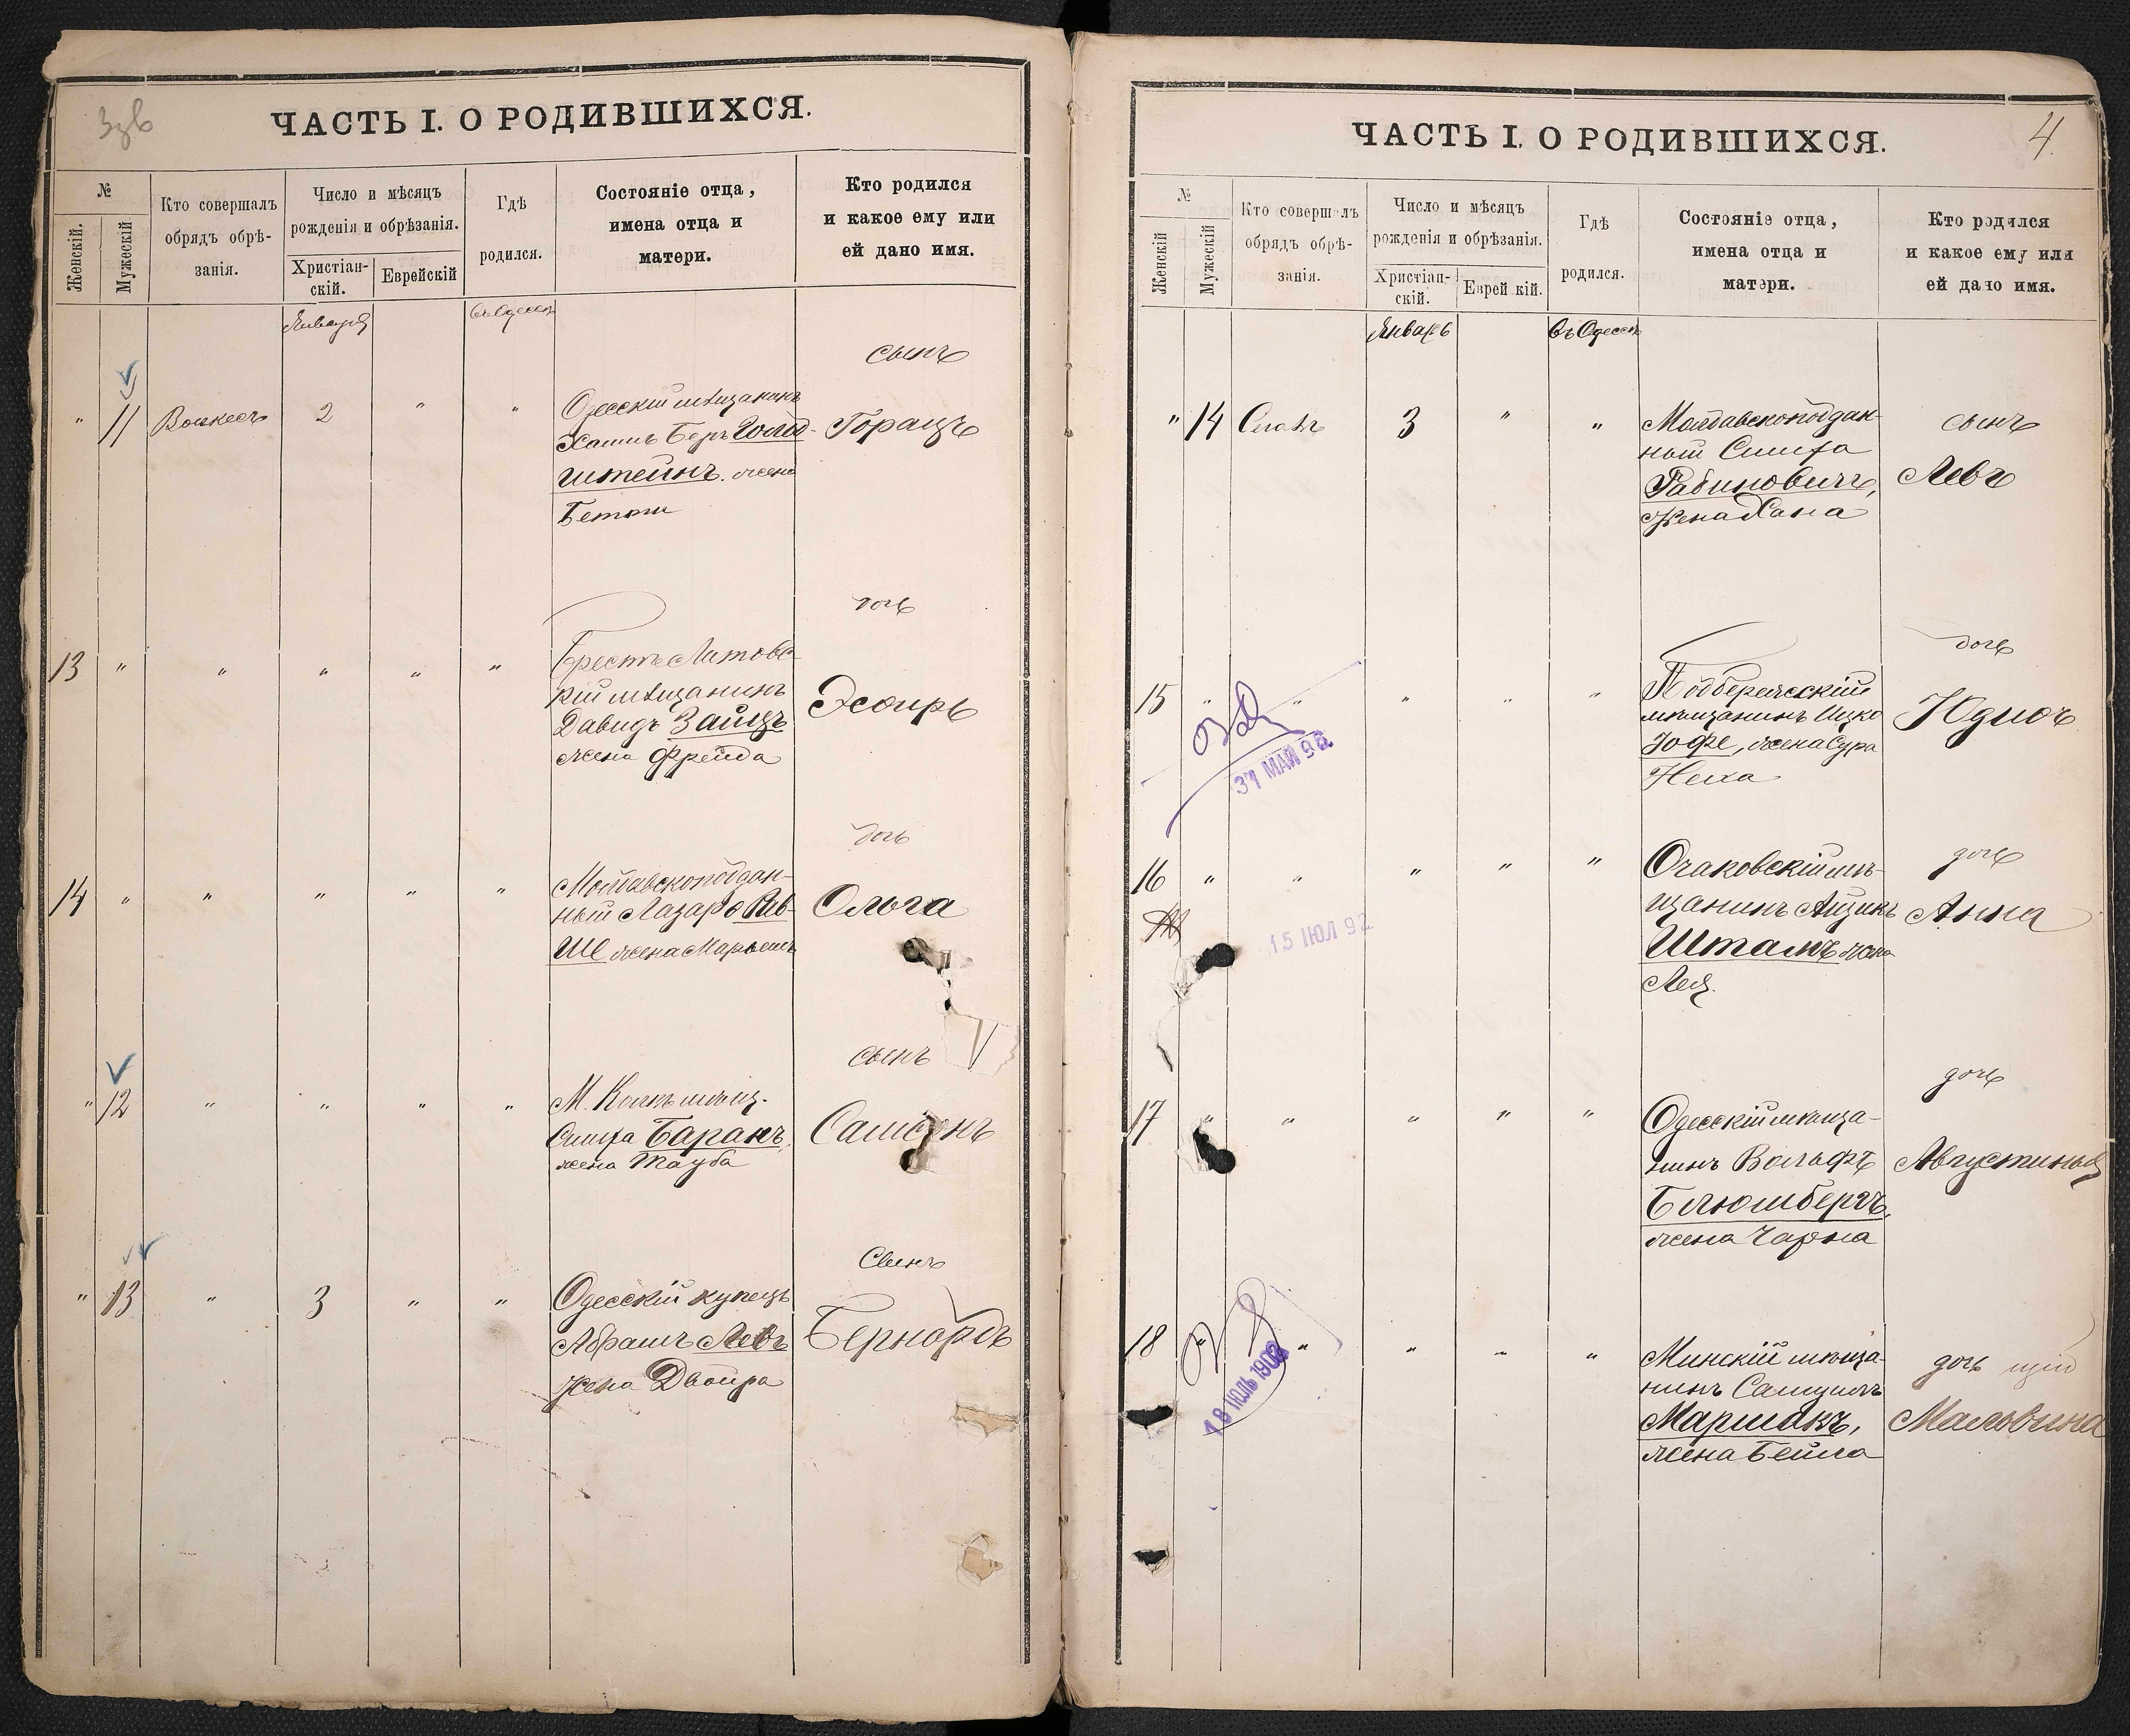 Ззв
ЧАСТЬ I. О РОДИВШИХСЯ.
№
Женскій.
Мужескій
Кто совершалъ
обрядъ обрѣ-
занія.
Число и мѣсяцъ
рожденія и обрѣзанія.
Христіан-
скій.
Еврейскій
Гдѣ
родился.
Состояніе отца,
имена отца и
матери.
Кто родился
и какое ему или
ей дано имя.
Январь
въ Одессѣ
сынъ
" 11 2 " "
Одесскій мѣщанинъ
Хаимъ Беръ Гольд-
штейнъ. жена
Бетти
Горацъ
дочь
13 " " " " "
Брестъ Литовс-
кій мѣщанинъ
Давидъ Заицъ
жена Фрейда
Эсѳирь
дочь
14 " " " " "
Молдавскоподдан-
ный Лазарь Рав-
ше жена Марьемъ
Ольга
сынъ
" 12 " " " "
М. Колкъ мѣщ.
Симха Баранъ,
жена Тауба
Самсонъ
Сынъ
" 13 " 3 " "
Одесскій купецъ
Абрамъ Левъ
жена Двойра
Бернардъ
ЧАСТЬ I. О РОДИВШИХСЯ.
4.
№
Женскій
Мужескій
Кто совершалъ
обрядъ обрѣ-
занія.
Число и мѣсяцъ
рожденія и обрѣзанія.
Христіан-
скій.
Еврей кій.
Гдѣ
родился.
Состояніе отца,
имена отца и
матери.
Кто родился
и какое ему или
ей дано имя.
Январь
въ Одессѣ
" 14 3 " "
Молдавскоподдан-
ный Симха
Рабиновичъ,
жена Хана
сынъ
Левъ
дочь
15 " " " " "
31 МАЙ 98
Подберезскій
мѣщанинъ Ицко
Іофе, жена Сура
Неха
Юдиѳь
дочь
16 " " " " "
15 ІЮЛ 92
Очаковскій мѣ-
щанинъ Айзикъ
Штамъ жена
Лея.
Анна
дочь
17 " " " " "
Одесскій мѣща-
нинъ Вольфъ
Блюмбергъ,
жена Чарна
Августина
18 " " " "
18 ІЮЛЬ 1902
Минскій мѣща-
нинъ Самуилъ
Маршакъ,
жена Бейла
дочь
Мальвина